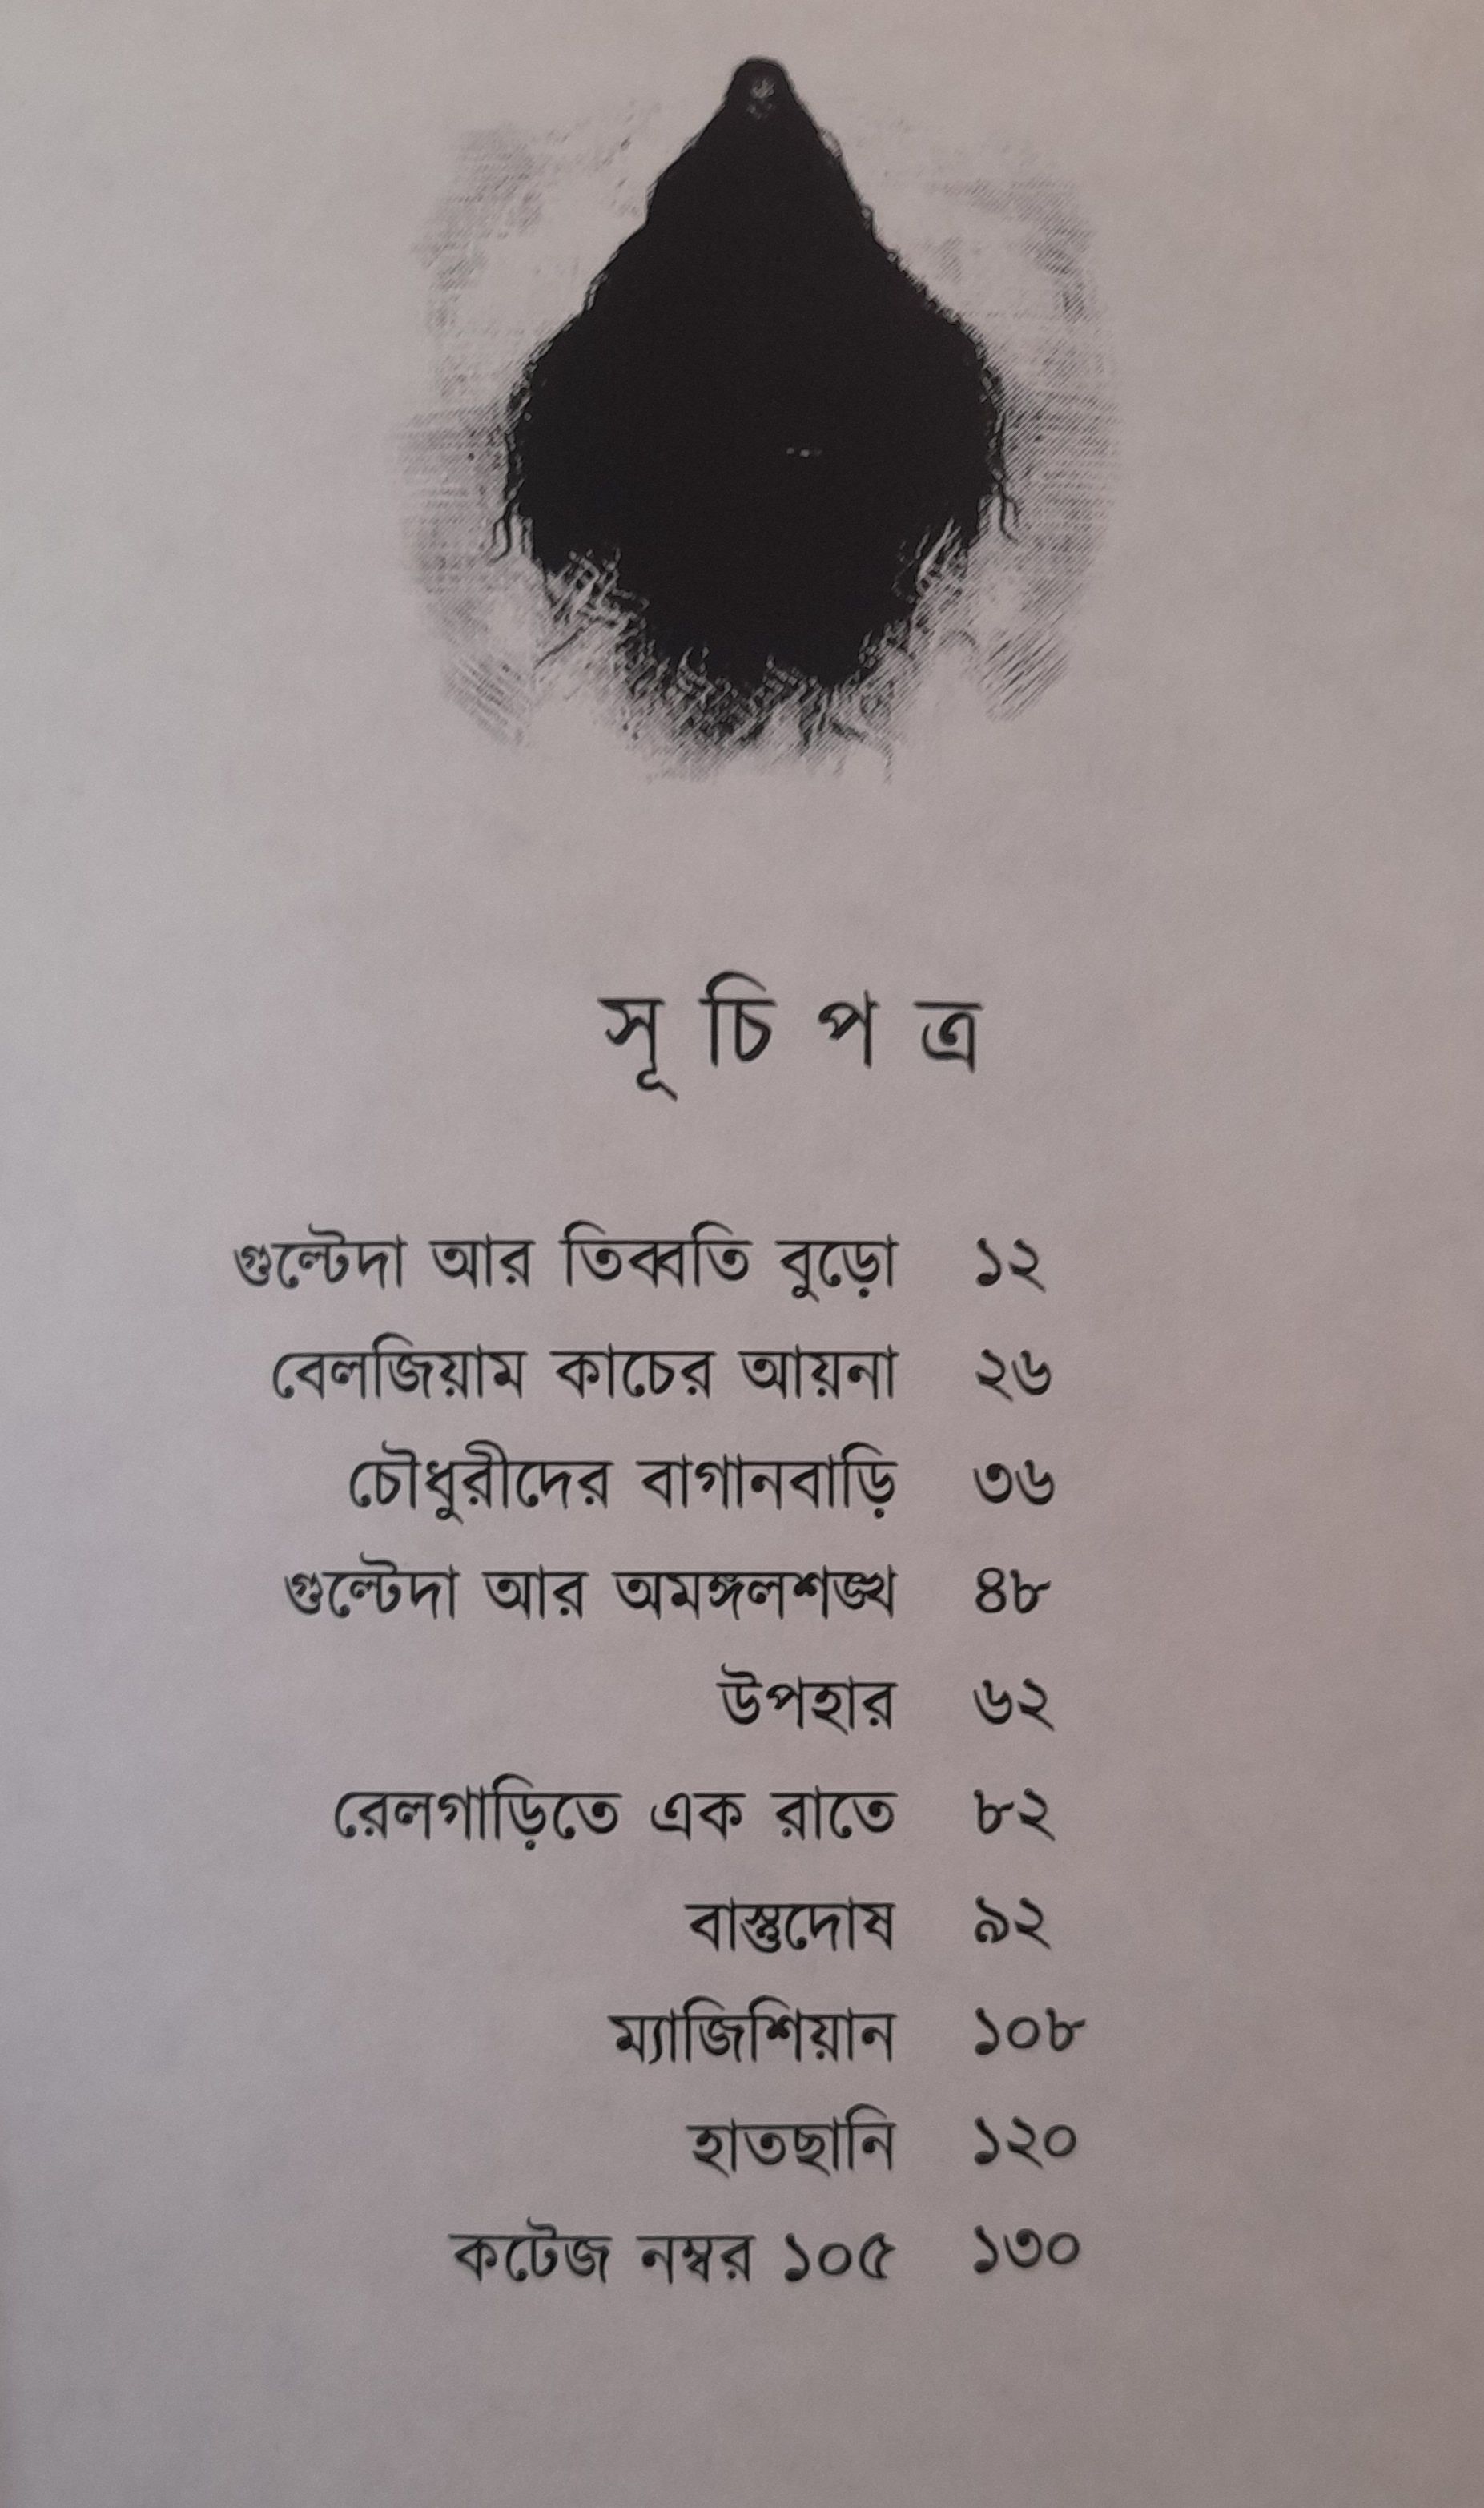 সূ চি প ত্র
গুল্টেদা আর তিব্বতি বুড়ো ১২
বেলজিয়াম কাচের আয়না ২৬
চৌধুরীদের বাগানবাড়ি ৩৬
গুল্টেদা আর অমঙ্গলশঙ্খ ৪৮
উপহার ৬২
রেলগাড়িতে এক রাতে ৮২
বাস্তুদোষ ৯২
ম্যাজিশিয়ান ১০৮
হাতছানি ১২০
কটেজ নম্বর ১০৫ ১৩০